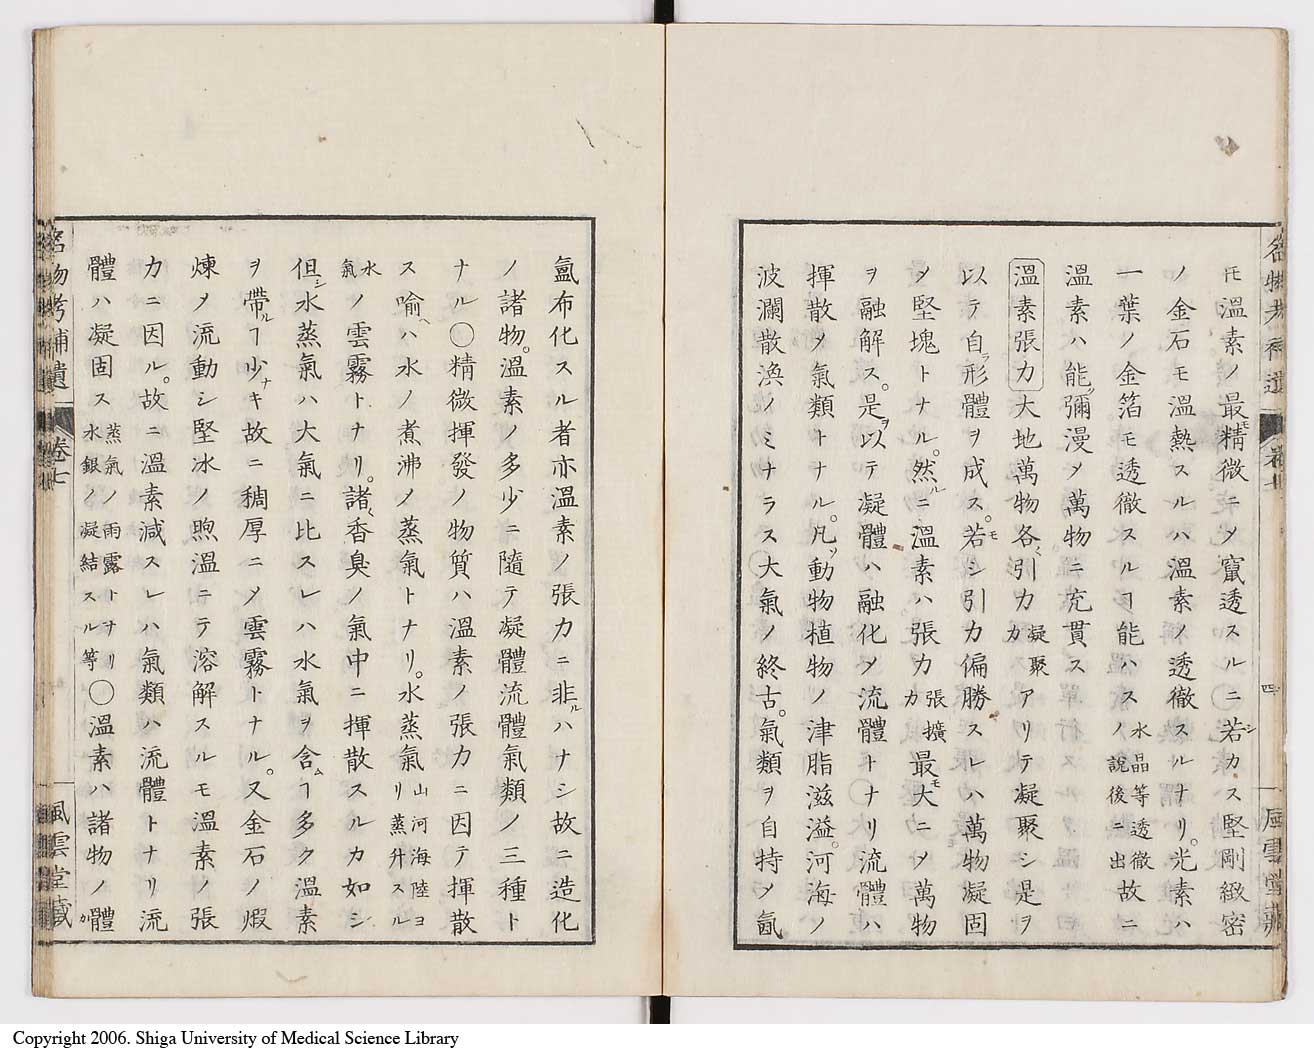 モ温素ノ最モ精微ニメ竄透スルニ若カス堅剛緻密
ノ金石モ温熱スルハ温素ノ透徹スルナリ。光素ハ
一葉ノ金箔モ透徹スルヿ能ハス水晶等透徹ノ説後ニ出故ニ
温素ハ能ク彌漫メ萬物ニ充貫ス
温素張力大地萬物各〻引力凝聚力アリテ凝聚シ是ヲ
以テ自ラ形體ヲ成ス。若モシ引力偏勝スレハ萬物凝固
メ堅塊トナル。然ルニ温素ハ張力張擴力最モ大ニメ萬物
ヲ融解ス。是ヲ以テ凝體ハ融化メ流體トナリ流體ハ
揮散メ氣類トナル。凡ソ動物植物ノ津脂滋溢。河海ノ
波瀾散渙ノミナラス大氣ノ終古。氣類ヲ自持メ氤
氳布化スル者亦温素ノ張力ニ非ルハナシ故ニ造化
ノ諸物。温素ノ多少ニ隨テ凝體流體氣類ノ三種ト
ナル〇精微揮發ノ物質ハ温素ノ張力ニ因テ揮散
ス喻ヘハ水ノ煮沸ノ蒸氣トナリ。水蒸氣山河海陸ヨリ蒸升スル
水氣ノ雲霧トナリ。諸〻香臭ノ氣中ニ揮散スルカ如シ
但シ水蒸氣ハ大氣ニ比スレハ水氣ヲ含ムヿ多ク温素
ヲ帶ルヿ少ナキ故ニ稠厚ニメ雲霧トナル。又金石ノ煅
煉メ流動シ堅氷ノ煦温ニテ溶解スルモ温素ノ張
力ニ因ル。故ニ温素減スレハ氣類ハ流體トナリ流
體ハ凝固ス蒸氣ノ雨露トナリ水銀ノ凝結スル等〇温素ハ諸物ノ體
名物考補遺
卷七
四
風雲堂藏
名物考補遺
卷七
風雲堂藏
Copyright 2006. Shiga University of Medical Science Library